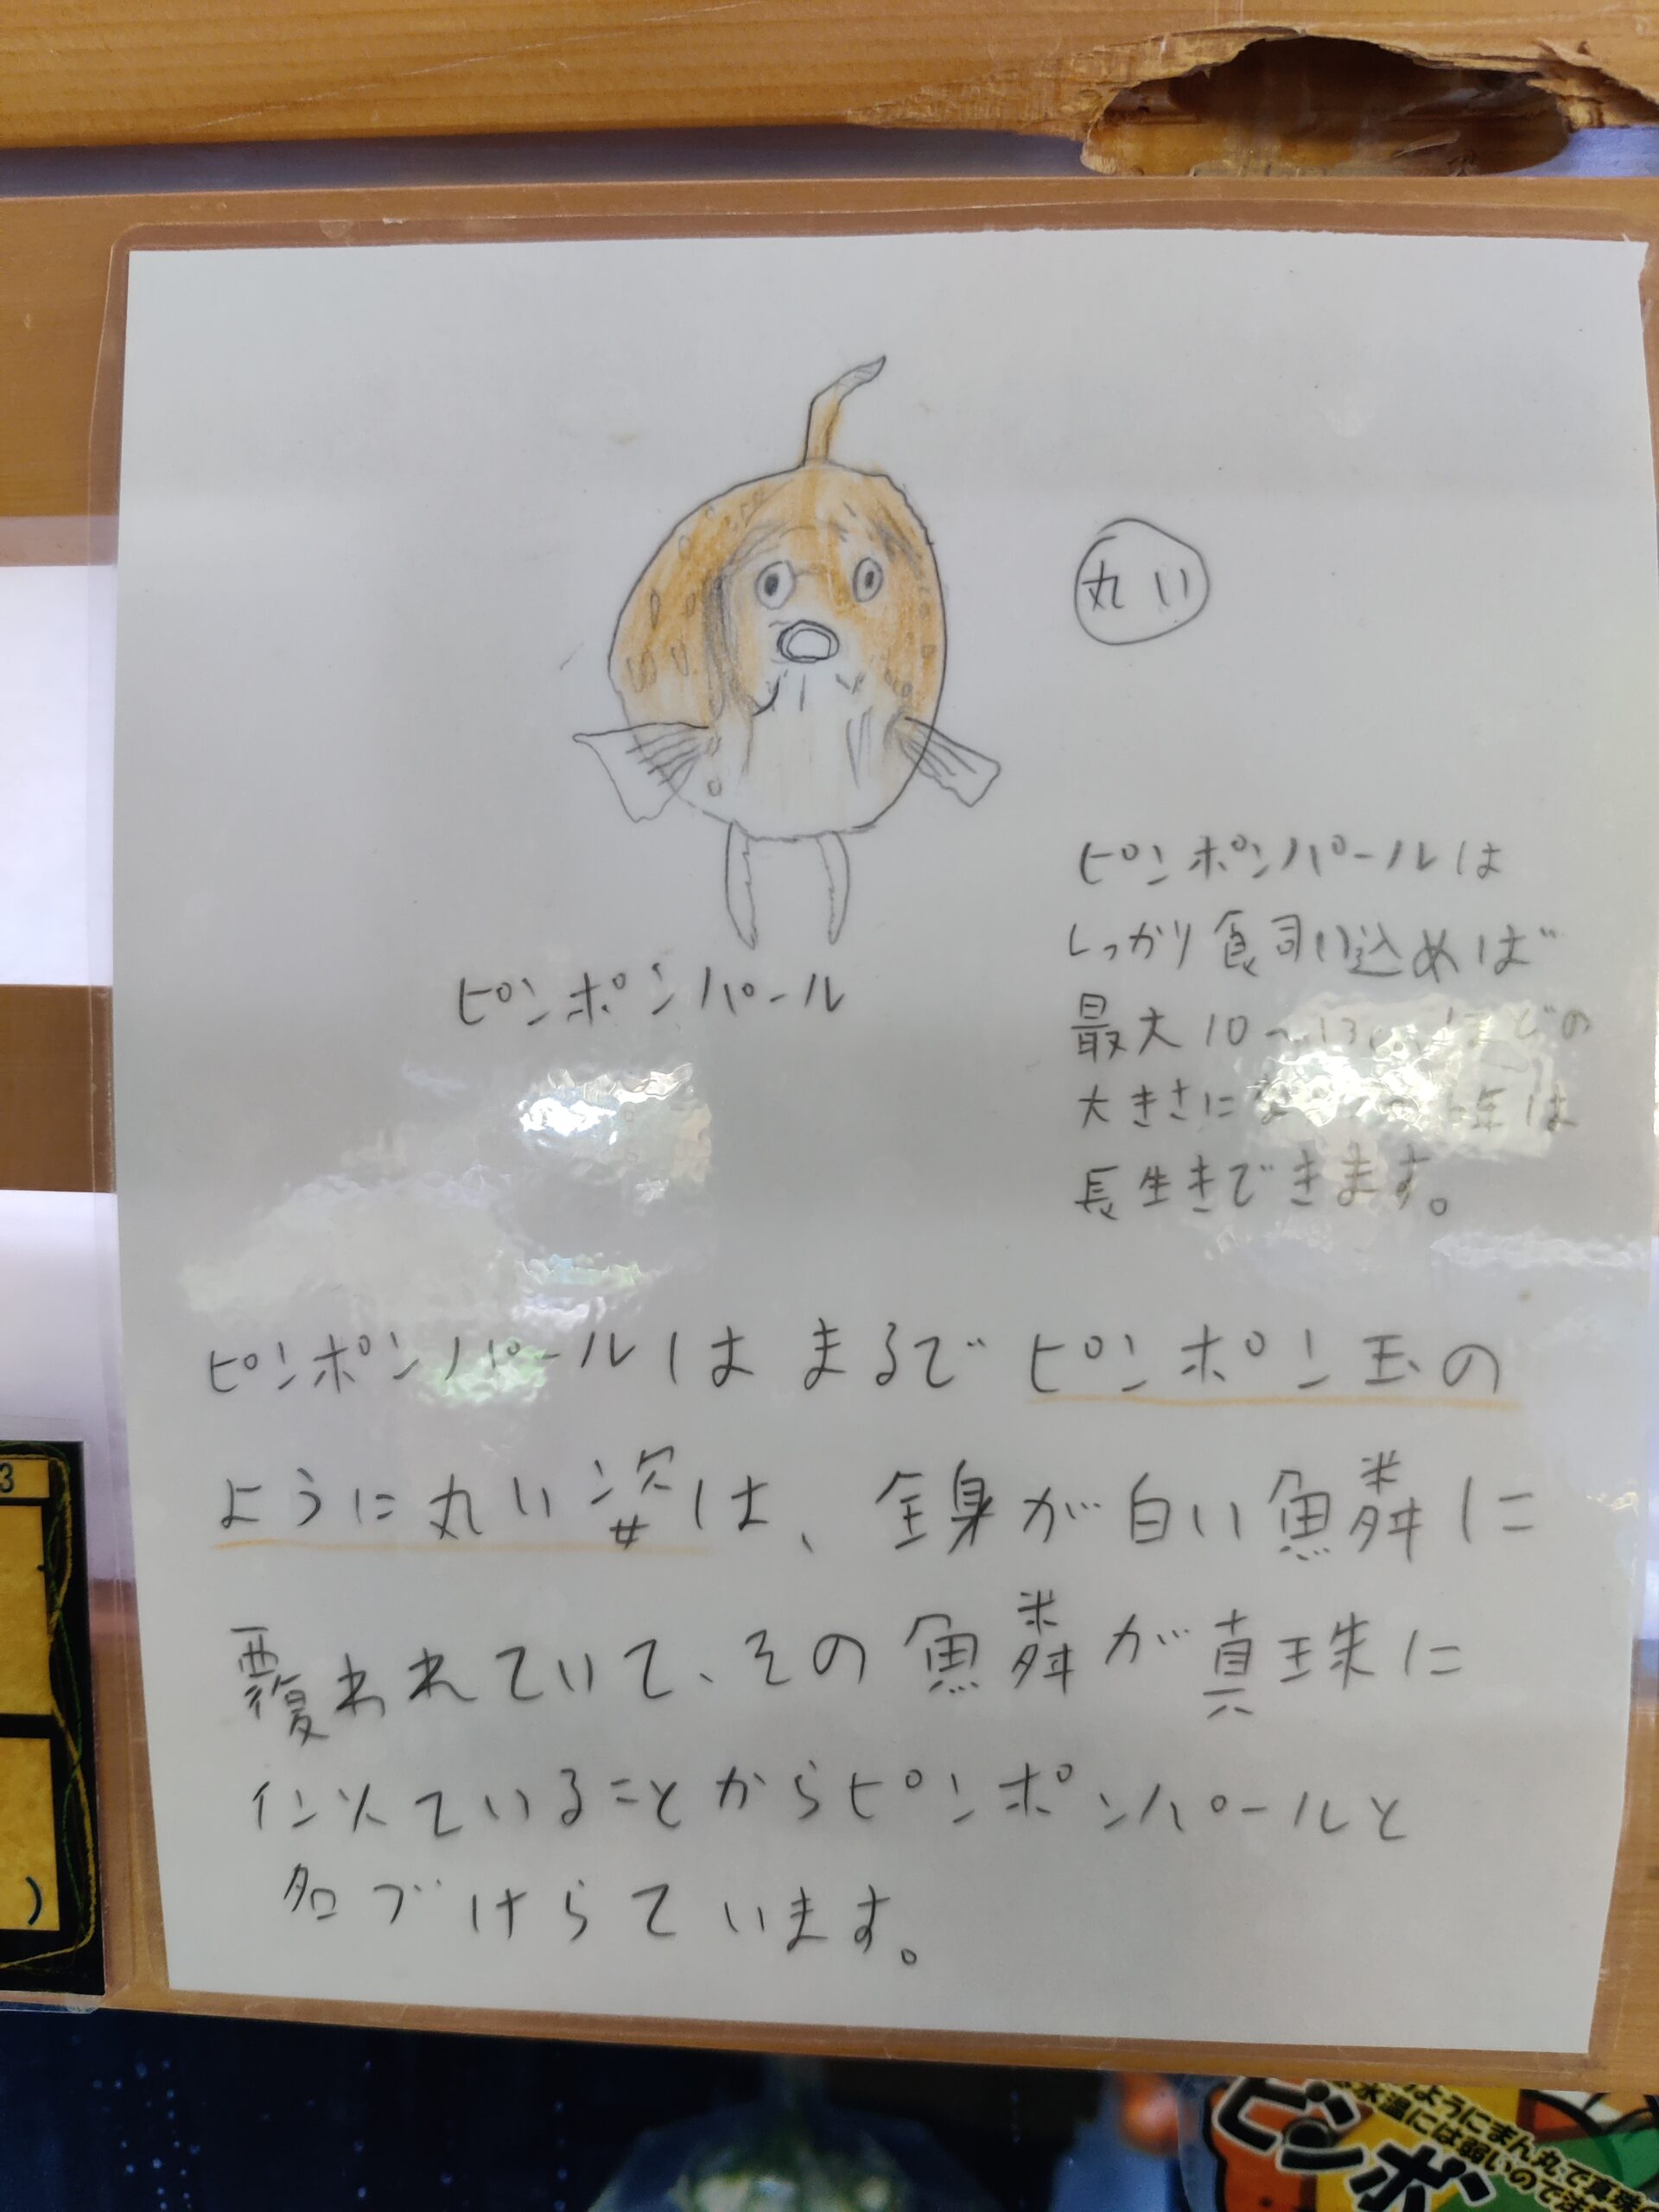 丸い
ピンポンパール
ピンポンパールは
しっかり飼い込めば
最大10〜13 ほどの
大きさにな 年は
長生きできます。
ピンポンパールは まるで ピンポン玉の
ように丸い姿は、全身が白い魚鱗に
覆われていて、その魚鱗が真珠に
似ていることからピンポンパールと
名づけらています。
3
)
ようにまん丸で真
水温には弱いので
ピンポ